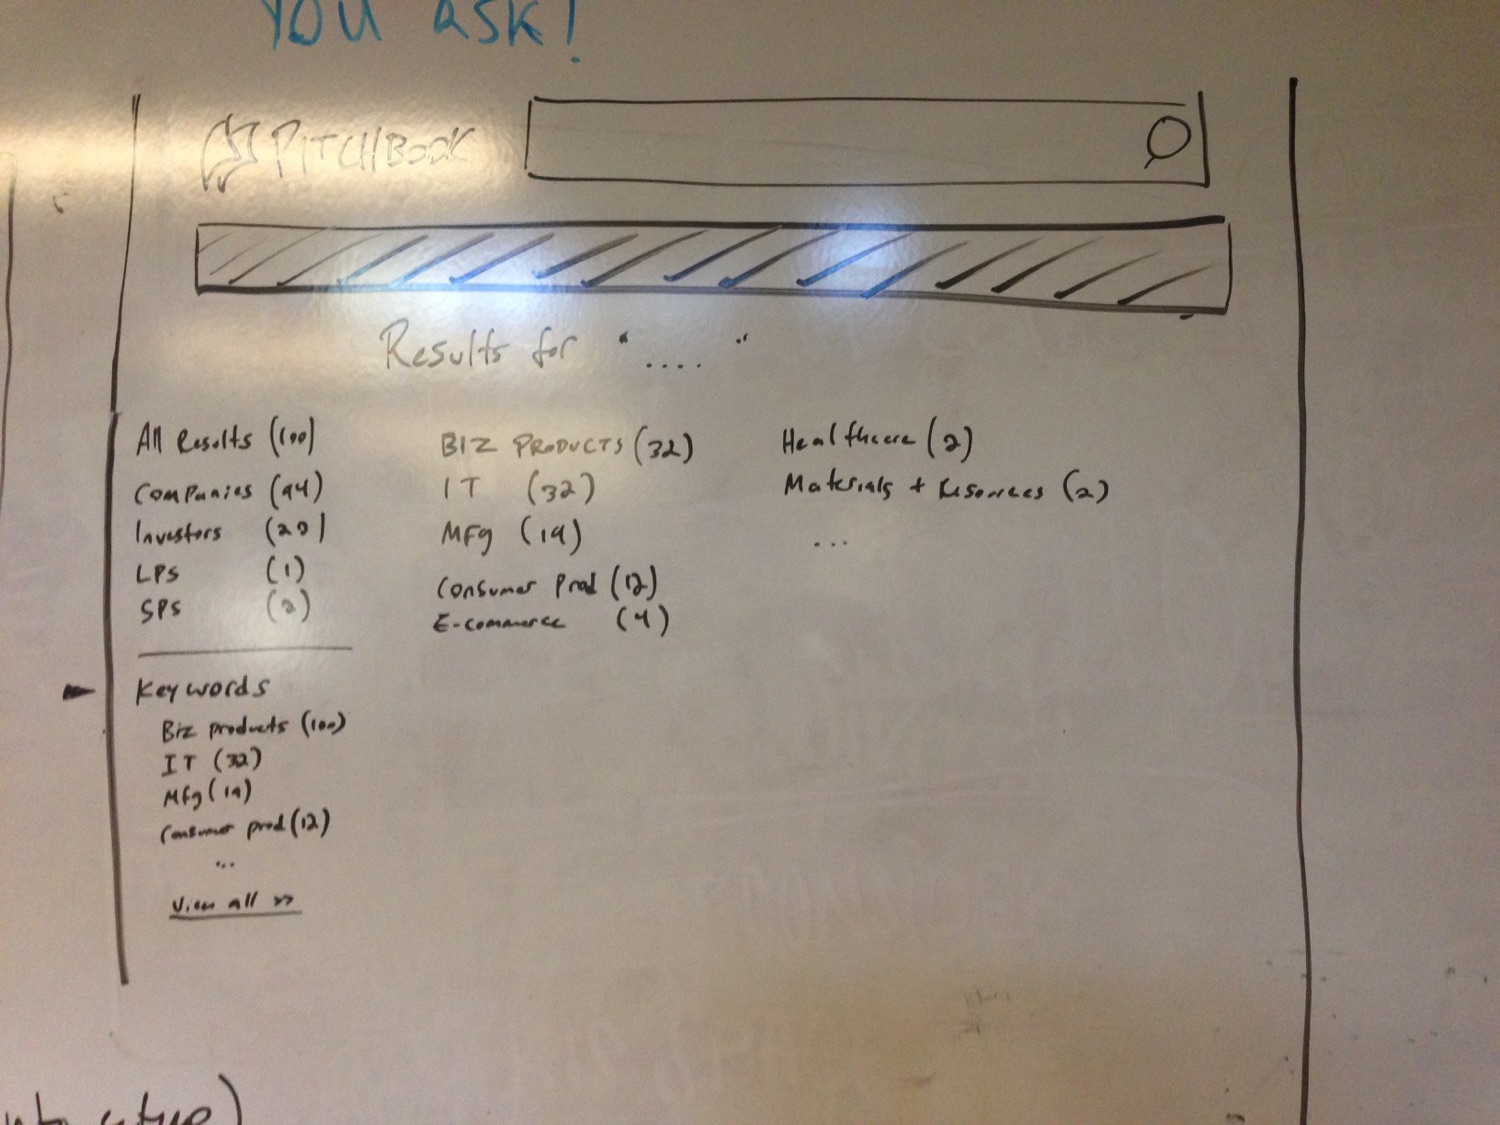 YOU ASK!
PITCHBOOK
Results for "...."
All Results (100)
Companies (94)
Investors (20)
LPs (1)
SPs (2)
Keywords
Biz products (100)
IT (32)
Mfg (19)
Consumer prod (12)
...
View all >>
BIZ PRODUCTS (32)
IT (32)
MFg (19)
Consumer Prod (12)
E-commerce (4)
Healthcare (2)
Materials + Resources (2)
...